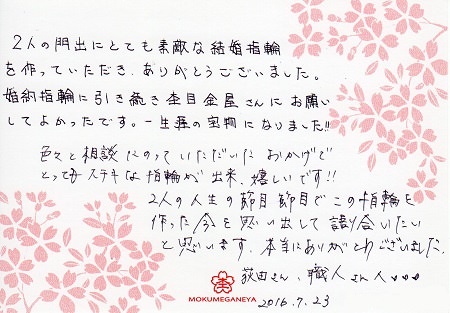 2人の門出にとても素敵な結婚指輪
を作っていただき、ありがとうございました。
婚約指輪に引き続き杢目金屋さんにお願い
してよかったです。一生涯の宝物になりました!!
色々と相談にのっていただいた おかげで
とってもステキな指輪が出来、嬉しいです!!
2人の人生の節目節目でこの指輪を
作った今を思い出して語り合いたい
と思います。本当にありがとうございました。
荻田さん、職人さんへ♡♡♡
杢
MOKUMEGANEYA
2016.7.23